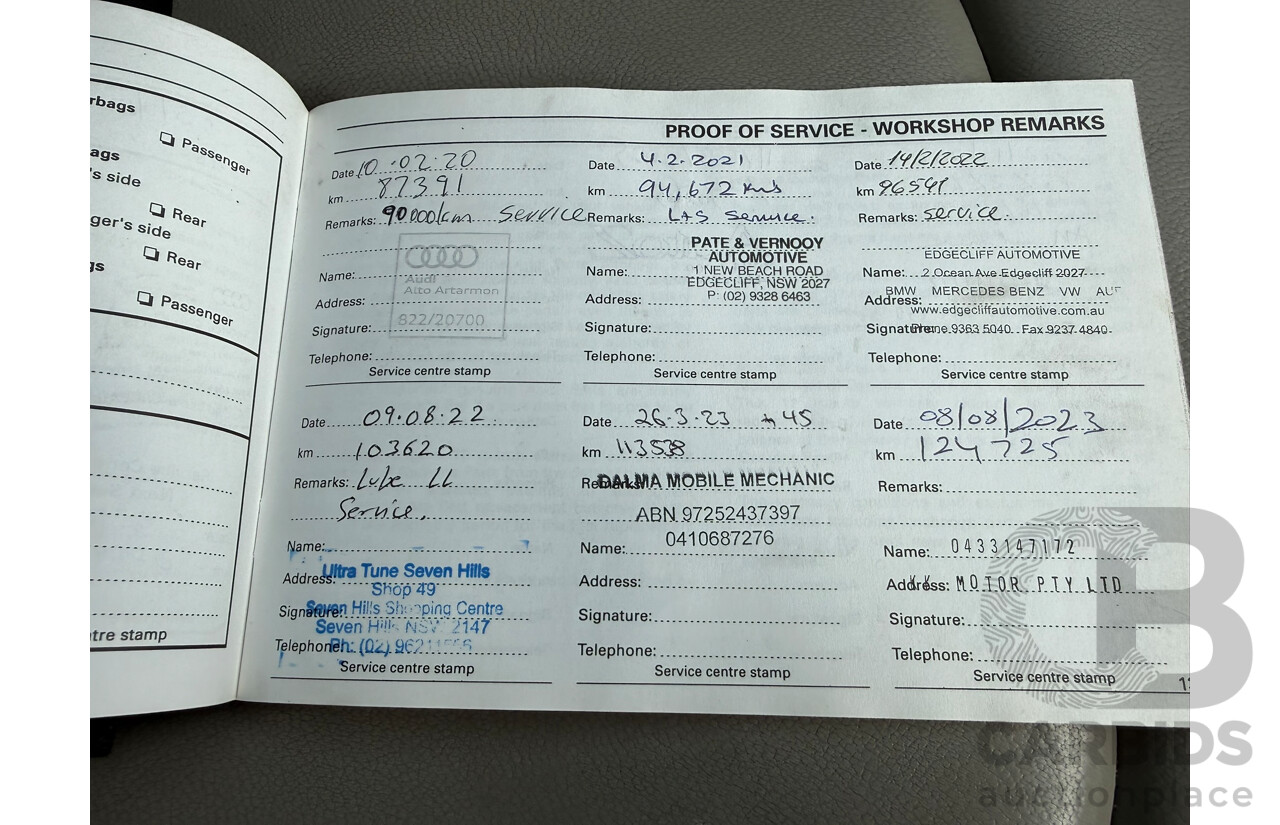 rbags
Passenger
ags
's side
Rear
ger's side
Rear
gs
Passenger
tre stamp
PROOF OF SERVICE - WORKSHOP REMARKS
Date 10.02.20
km 87391
Remarks: 90000/km Service
Audi
Alto Artarmon
Name:
Address:
822/20700
Signature:
Telephone:
Service centre stamp
Date 4.2.2021
km 94,672 kms
Remarks: Service.
PATE & VERNOOY
AUTOMOTIVE
Name: 1 NEW BEACH ROAD
EDGECLIFF, NSW 2027
Address: P: (02) 9328 6463
Signature:
Telephone:
Service centre stamp
Date 14/2/2022
km 96541
Remarks: service.
EDGECLIFF AUTOMOTIVE
Name: 2 Ocean Ave Edgecliff 2027
BMW MERCEDES BENZ VW
Address:
www.edgecliffautomotive.com.au
Signature: Phone 9363 5040 Fax 9237 4840
Telephone:
Service centre stamp
Date 09.08.22
km 103620
Remarks: Lube LL
Service.
Name:
Ultra Tune Seven Hills
Address: Shop 49
Signature: Seven Hills Shopping Centre
Seven Hills NSW 2147
Telephone: Ph: (02)
Service centre stamp
Date 26.3.23 45
km 113538
Remarks: DALMA MOBILE MECHANIC
ABN 97252437397
0410687276
Name:
Address:
Signature:
Telephone:
Service centre stamp
Date 08/08/2023
km 124725
Remarks:
Name: 0433147172
Address: MOTOR PTY LTD
Signature:
Telephone:
Service centre stamp
CARBIDS
auctionplace